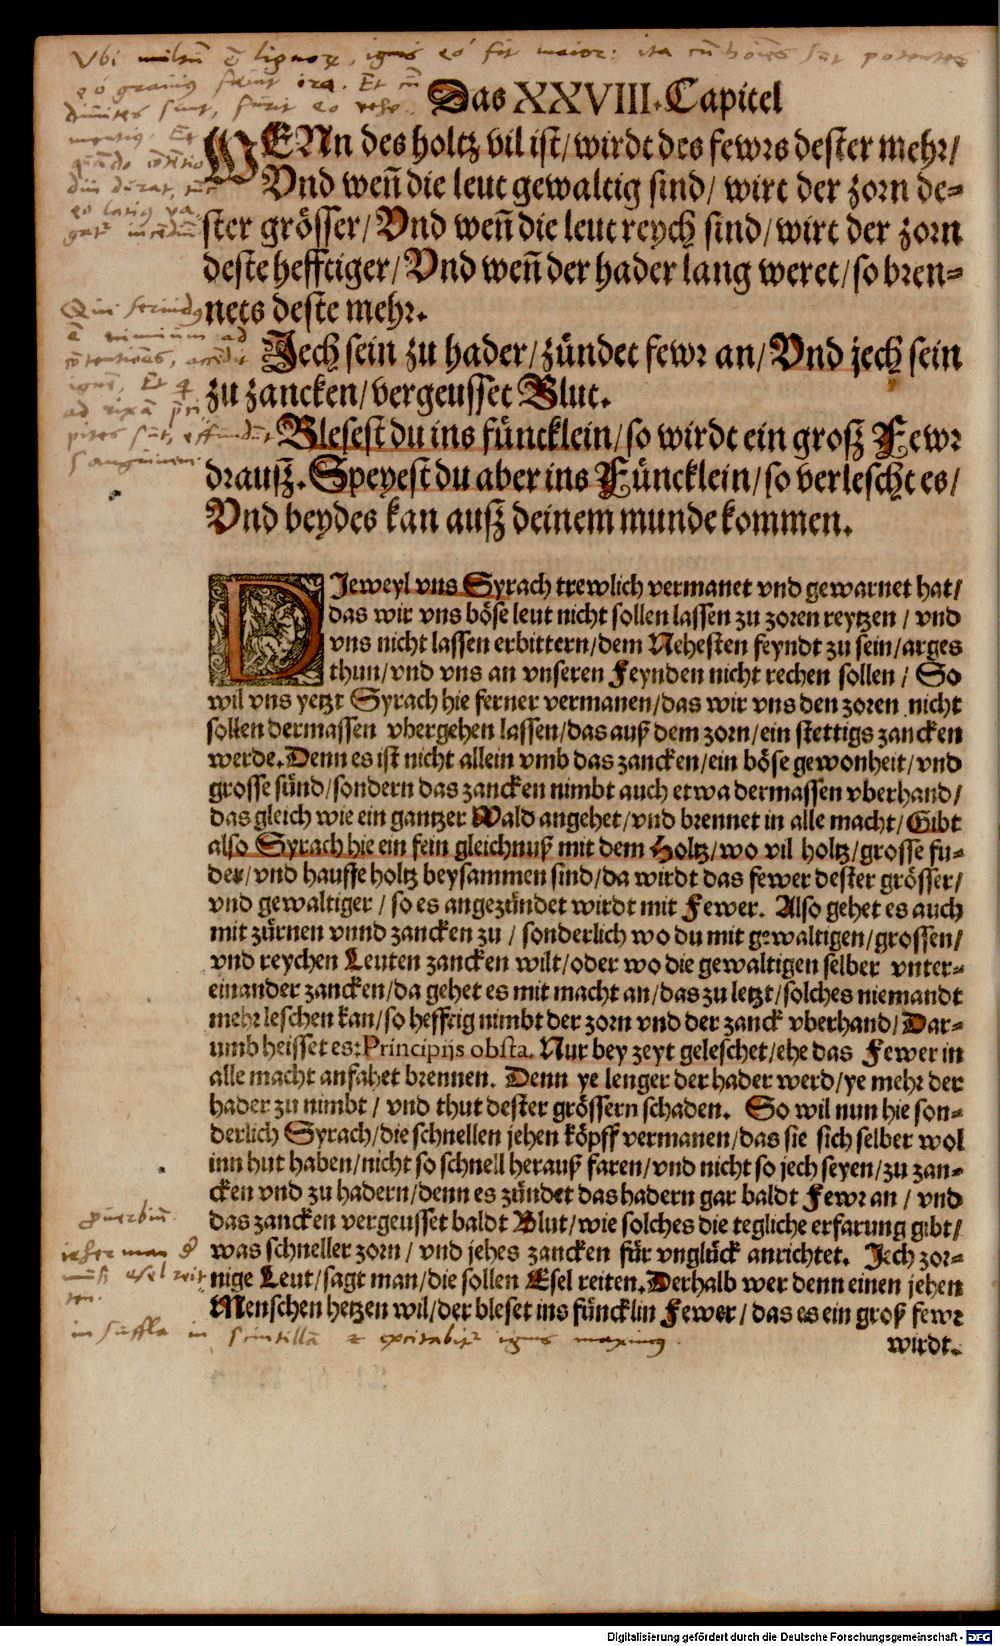 Vbi multū ē lignoꝝ, ignis eo fit maior: ita cū hoīes sūt potentes
eo grauius fit ira. Et cū
diuites sunt, furit eo vehe-
mentius. Et
quādo cōtētio
diu durat, tūc
eo latius va-
gat' incēdiū
Das XXVIII. Capitel
WENn des holtz vil ist/ wirdt des fewrs dester mehr/
Vnd weñ die leut gewaltig sind/ wirt der zorn de=
ster grösser/ Vnd weñ die leut reych sind/ wirt der zorn
deste hefftiger/ Vnd weñ der hader lang weret/ so bren=
nets deste mehr.
Jech sein zu hader/ zündet fewr an/ Vnd jech sein
zu zancken/ vergeusset Blut.
Blesest du ins füncklein/ so wirdt ein grosz Fewr
drausz. Speyest du aber ins Füncklein/ so verlescht es/
Vnd beydes kan ausz deinem munde kommen.
Qui feruidus
ē nimium ad
cōtentiones, accēdit
ignē. Et q
ad rixā preci
pites sūt, effundūt
sanguinem
DJeweyl vns Syrach trewlich vermanet vnd gewarnet hat/
das wir vns böse leut nicht sollen lassen zu zoren reytzen / vnd
vns nicht lassen erbittern/ dem Nehesten feyndt zu sein/ arges
thun/ vnd vns an vnseren Feynden nicht rechen sollen / So
wil vns yetzt Syrach hie ferner vermanen/ das wir vns den zoren nicht
sollen dermassen vbergehen lassen/ das auß dem zorn/ ein stettigs zancken
werde. Denn es ist nicht allein vmb das zancken/ ein böse gewonheit/ vnd
grosse sünd/ sondern das zancken nimbt auch etwa dermassen vberhand/
das gleich wie ein gantzer Wald angehet/ vnd brennet in alle macht/ Gibt
also Syrach hie ein fein gleichnuß mit dem Holtz/ wo vil holtz/ grosse fu=
der/ vnd hauffe holtz beysammen sind/ da wirdt das fewer dester grösser/
vnd gewaltiger / so es angezündet wirdt mit Fewer. Also gehet es auch
mit zürnen vnnd zancken zu / sonderlich wo du mit gewaltigen/ grossen/
vnd reychen Leuten zancken wilt/ oder wo die gewaltigen selber vnter=
einander zancken/ da gehet es mit macht an/ das zu letzt/ solches niemandt
mehr leschen kan/ so hefftig nimbt der zorn vnd der zanck vberhand/ Dar=
umb heisset es: Principijs obsta. Nur bey zeyt geleschet/ ehe das Fewer in
alle macht anfahet brennen. Denn ye lenger der hader werd/ ye mehr der
hader zu nimbt / vnd thut dester grössern schaden. So wil nun hie son=
derlich Syrach/ die schnellen jehen köpff vermanen/ das sie sich selber wol
inn hut haben/ nicht so schnell herauß faren/ vnd nicht so jech seyen/ zu zan=
cken vnd zu hadern/ denn es zündet das hadern gar baldt Fewr an / vnd
das zancken vergeusset baldt Blut/ wie solches die tegliche erfarung gibt/
was schneller zorn / vnd jehes zancken für vnglück anrichtet. Jech zor=
nige Leut/ sagt man/ die sollen Esel reiten. Derhalb wer denn einen jehen
Menschen hetzen wil/ der bleset ins füncklin Fewer/ das es ein groß fewr
wirdt.
puerbiū
ieher man d
muß esel reit
ten.
in suffla in scintillā & excitabit' ignis maximus
Digitalisierung gefördert durch die Deutsche Forschungsgemeinschaft - DFG